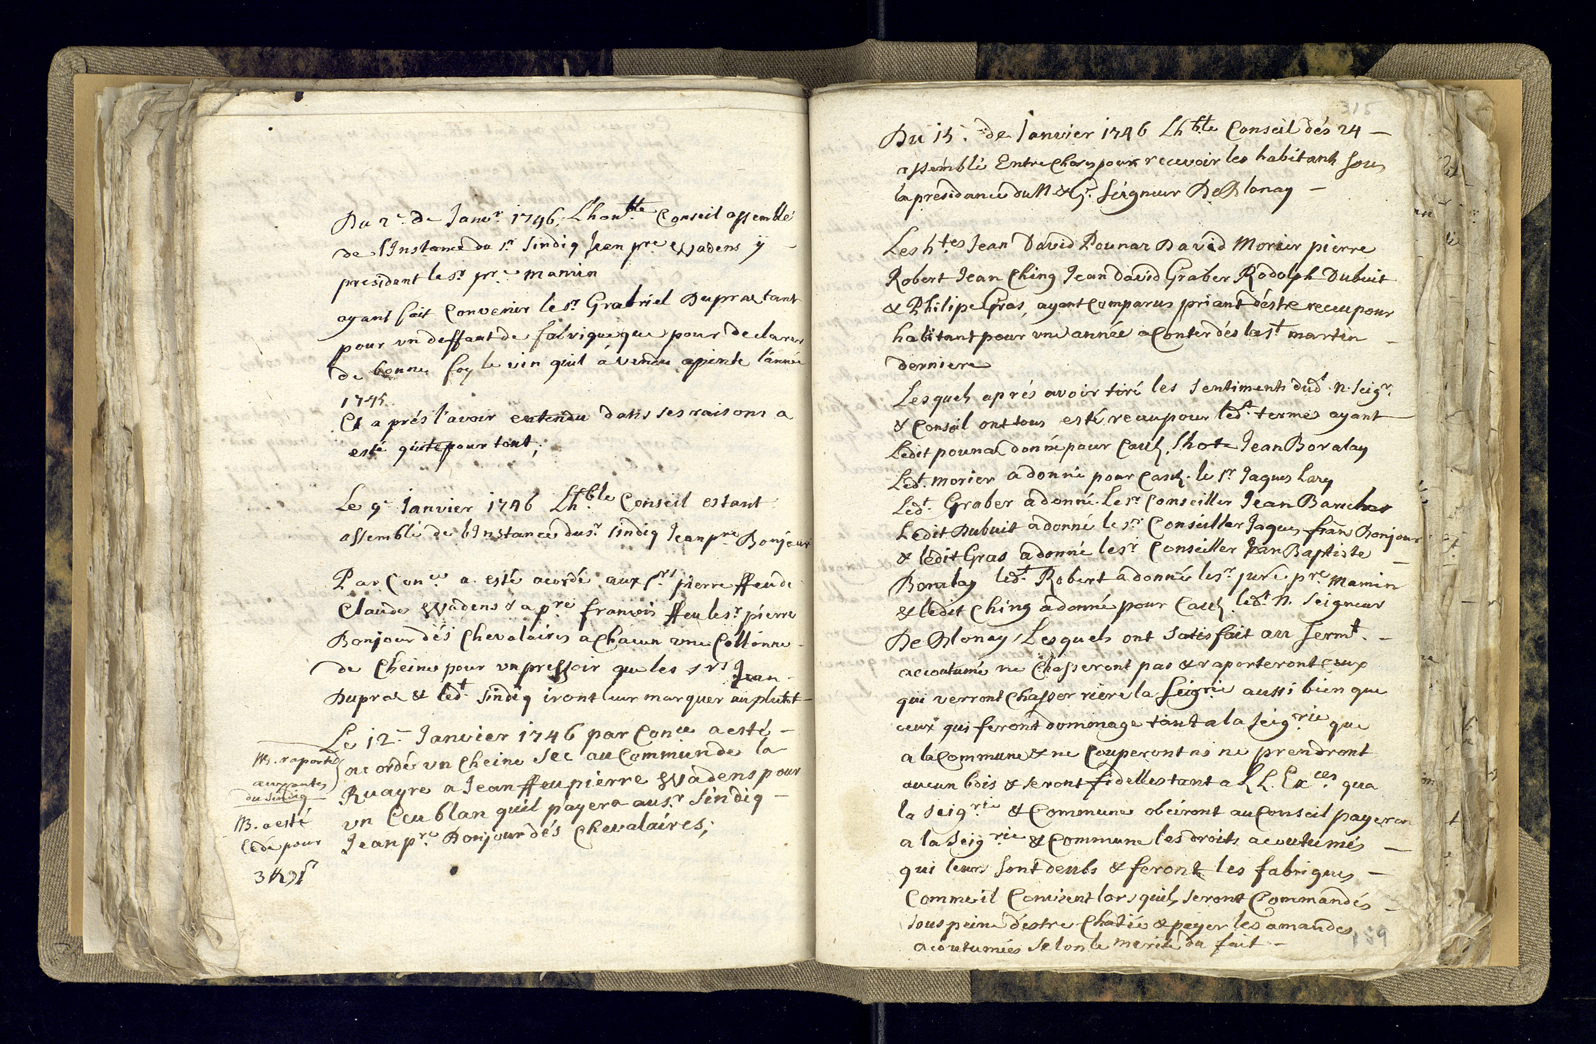 Du 2e. de Janvr. 1746. L'honble Conseil assemblé
de l'Instance du Sr. Sindiq Jean pre Wadens ÿ
president le Sr. pre. mamin
ayant fait Convenir le Sr. Gratriel Dupraz tant
pour vn deffaut de fabrique que pour declarer
de bonne foy le vin qu'il a vendu apente l'année
1745.
Et aprés l'avoir entendu dans ses raisons a
esté quite pour tout;
Le 9e Janvier 1746 Lhble Conseil estant
assemblé de l'Instance du Sr. Sindiq Jean pre Bonjour
Par Conce a esté acordé aux Srs pierre ffeu de
Claude Wadens & a pre francois ffeu le Sr. pierre
Bonjour dés Chevalaires a Chacun vne Collonne
de Cheine pour vn pressoir que les Srs Jean
Dupraz & led.t Sindiq iront leur marquer au plutot
Le 12e Janvier 1746 par Conce a esté
acordér vn Cheine sec au Commun de la
Ruayre a Jean ffeu pierre Wadens pour
vn Ecu blan quil payera au Sr. Sindiq
Jean pre. Bonjour dés Chevalaires;
NB. raporté
aux
du Sindiq
NB. a esté
cédé pour
315
Du 15. de Janvier 1746 Lhble Conseil dés 24
assemblé Entre Chars pour recevoir les habitants sous
la présidance du N. & G. Seigneur De Blonay
Les h.tes Jean David Pounaz David Morier pierre
Robert Jean Ching Jean David Graber Rodolph Dubuit
& Philipe Gras, ayant Comparus priant déstre receu pour
habitant pour vne année a Conter dés la St martin
derniere
Lesquels aprés avoir tiré les sentiments dud.t N. Seigr.
& Conseil ont tous esté receu pour led.t termes ayant
Ledit pounaz donné pour Caul. lhote Jean Boralay
Led.t morier a donné pour Caul. le Sr. Jaques Lary
Led.t Graber a donné le Sr Conseiller Jean Baucher
Ledit Dubuit a donné le Sr. Conseiller Jaques fran Bonjour
& ledit Gras a donné le Sr Conseiller Jean Baptiste
Boralay led.t Robert a donné le Sr. juré pre. Mamin
& ledit Ching a donné pour Caul. led.t N. Seigneur
De Blonay, Lesquels ont satisfait au Serm.t
accoutumé ne Chasseront pas & raporteront ceux
qui verront Chasser riere la Seigrie aussi bien que
ceux qui feront dommage tant a la Seigrie que
a la Commune & ne Couperont ni ne prendront
aucun bois & seront fidelles tant a LL. Exces qua
la Seigrie & Commune obéiront au Conseil payeron
a la Seigrie & Commune les droits acoutumés
qui leurs sont deubs & feront les fabriques
Comme il Convient lors quils seront Commandés
sous peine d'estre Chatié & payer les amandes
acoutumées selon le merite du fait
159